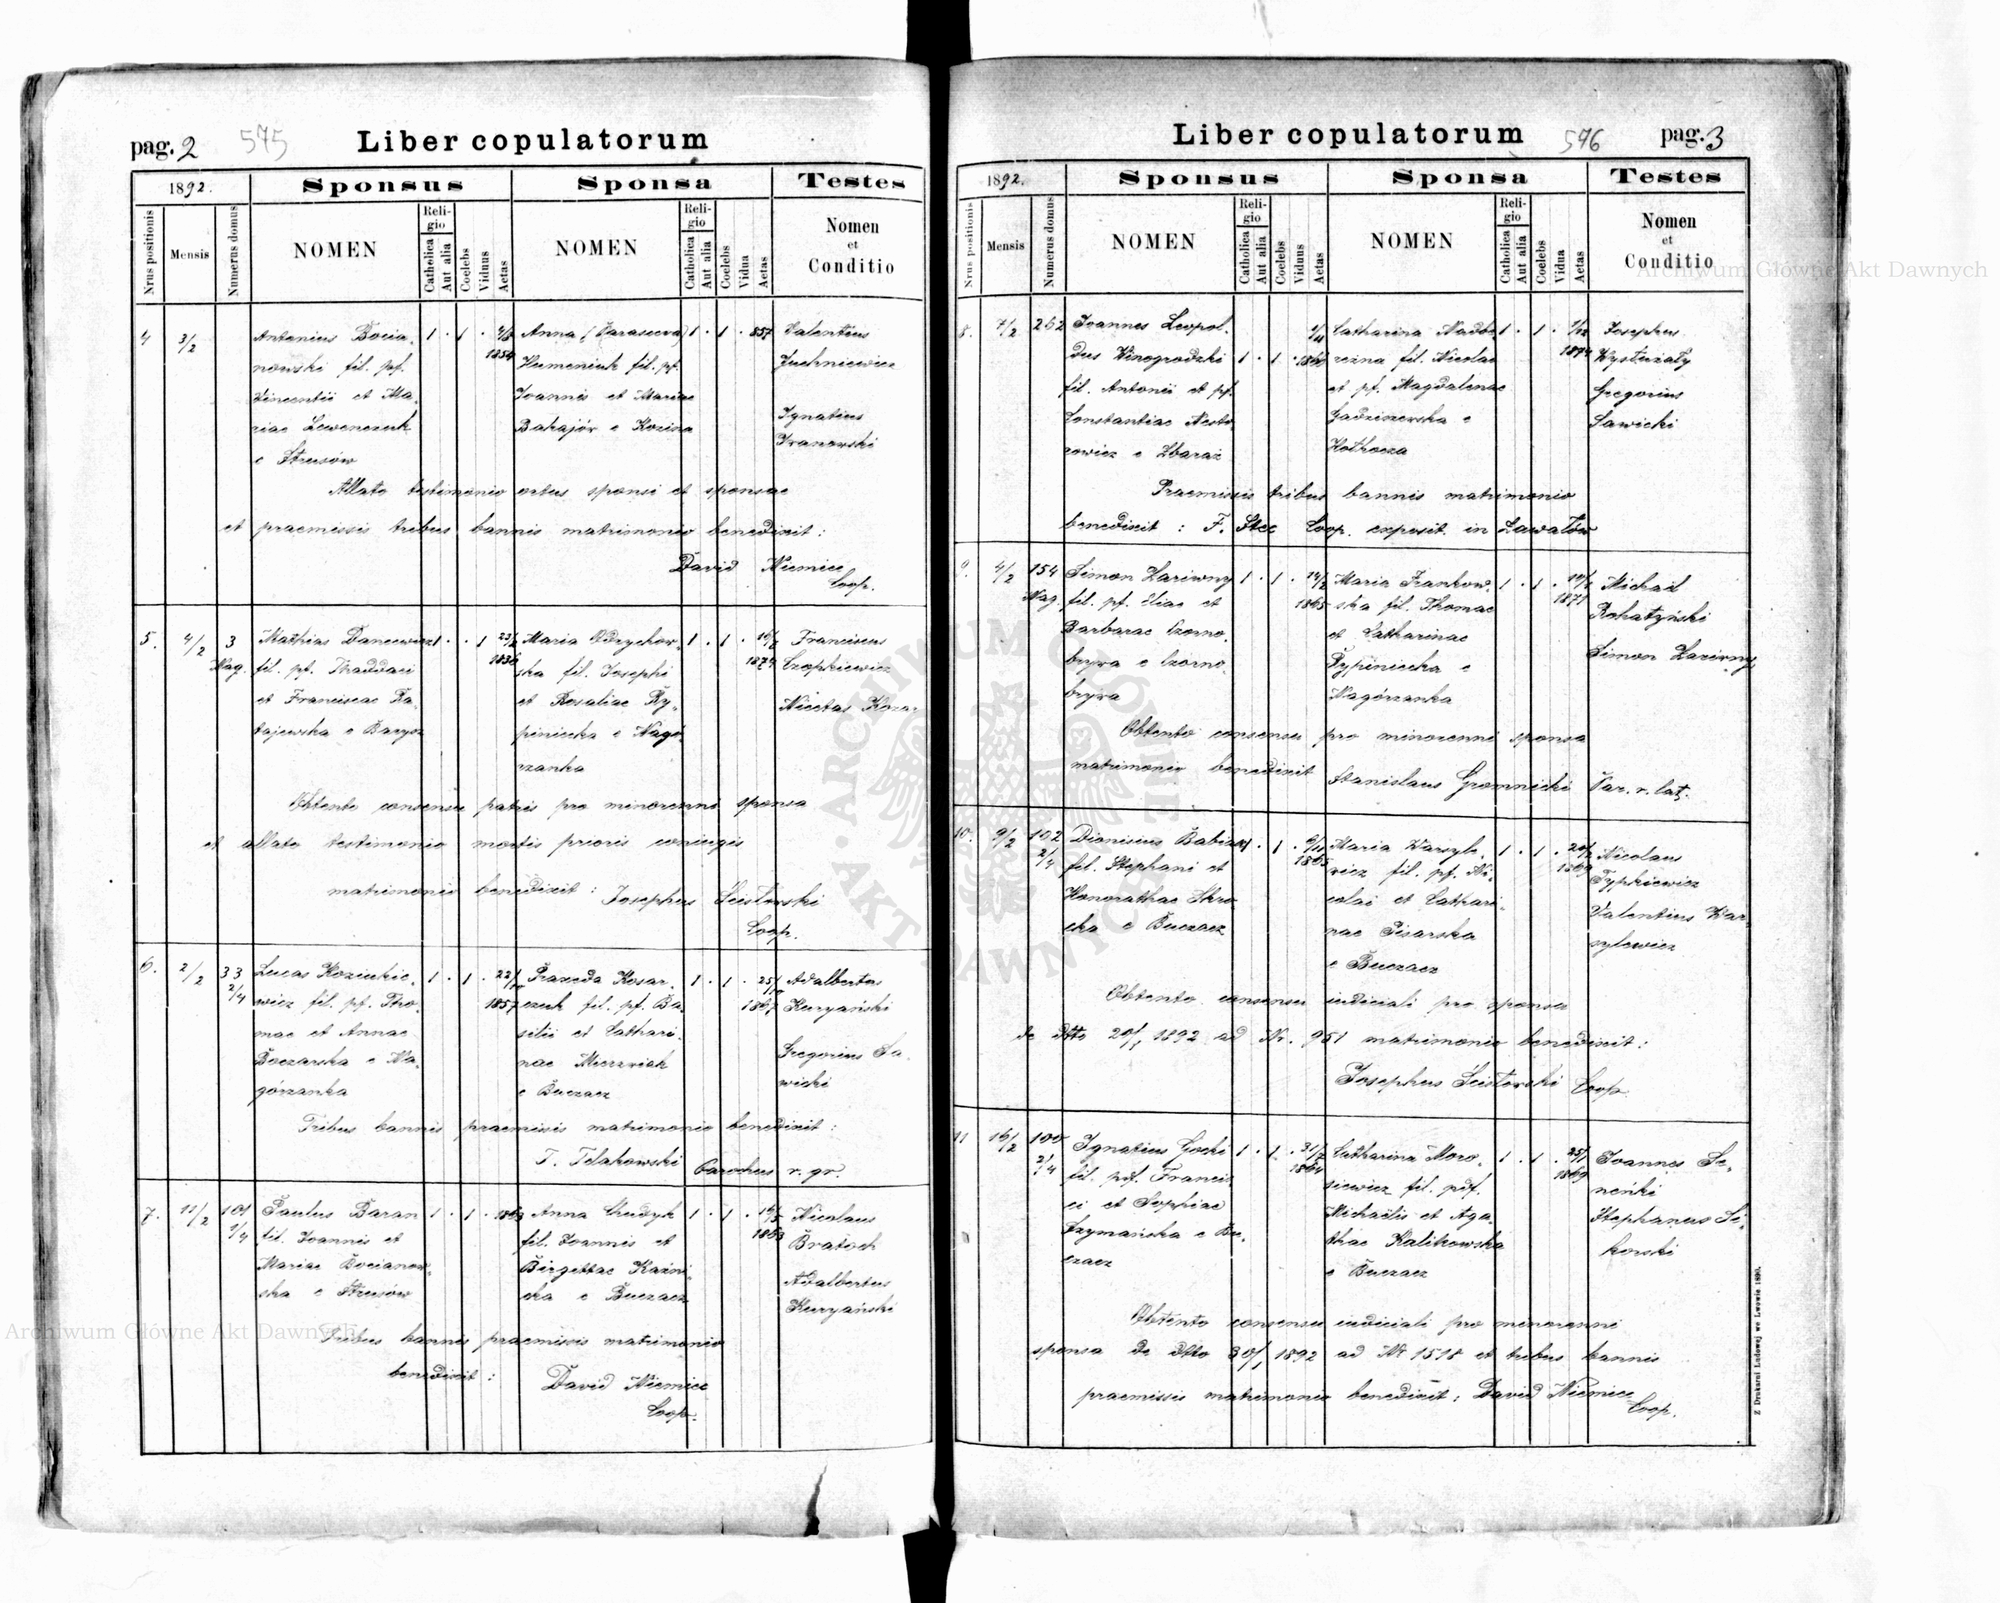 pag. 2
575
Liber copulatorum
1892.
Sponsus
Sponsa
Testes
Nrus positionis
Mensis
Numerus domus
NOMEN
Religio
Catholica
Aut alia
Coelebs
Viduus
Aetas
NOMEN
Religio
Catholica
Aut alia
Coelebs
Vidua
Aetas
Nomen
et
Conditio
4 3/2
Antonius Bocia-
nowski fil. pf.
Vincentii et Ma-
riae Lewenczuk
e Strusów
1 . 1 .
1854
Anna (Parasceva)
Humeniuk fil. pf.
Joannis et Mariae
Bakajór e Kozina
1 . 1 . 857
Valentius
Juchniewicz
Ignatius
Iranowski
Allato testimonio ortus sponsi et sponsae
et praemissis tribus bannis matrimonio benedixit:
David Niemiec
Coop.
5. 4/2 3
Nag.
Mathias Dancewicz
fil. pf. Thaddaei
et Franciscae Ra-
tajewska e Barysz
1 . . 1 23/2
1836
Maria Odrychow-
ska fil. Josephi
et Rosaliae Ry-
piniecka e Nagó-
rzanka
1 . 1 .
1874
Franciscus
Czopkiewicz
Nicetas Koza-
Obtento consensu patris pro minorenni sponsa
et allato testimonio mortis prioris coniugis
matrimonio benedixit: Josephus Scisłowski
Coop.
6. 2/2 33
2/4
Lucas Koziukie-
wicz fil. pf. Tho-
mae et Annae
Boczarska e Na-
górzanka
1 . 1 . 22/10
1857
Praxeda Kosar-
czuk fil. pf. Ba-
silii et Cathari-
nae Mierzwiak
e Buczacz
1 . 1 . 25/10
1867
Adalbertus
Kuryański
Gregorius Sa-
wicki
Tribus bannis praemissis matrimonio benedixit:
T. Telakowski Parochus r. gr.
7. 11/2 101
1/4
Paulus Baran
fil. Joannis et
Mariae Bocianow-
ska e Strusów
1 . 1 . 1863
Anna Chudyk
fil. Joannis et
Birgettae Kaźni-
cka e Buczacz
1 . 1 . 16/5
1863
Nicolaus
Bratoch
Adalbertus
Kuryański
Tribus bannis praemissis matrimonio
benedixit:
David Niemiec
Coop.
Liber copulatorum
576
pag. 3
1892.
Sponsus
Sponsa
Testes
Nrus positionis
Mensis
Numerus domus
NOMEN
Religio
Catholica
Aut alia
Coelebs
Viduus
Aetas
NOMEN
Religio
Catholica
Aut alia
Coelebs
Vidua
Aetas
Nomen
et
Conditio
8. 7/2 262
Joannes Leopol-
dus Winogrodzki
fil. Antonii et pf.
Constantiae Nesto
rowicz e Zbaraż
1 . 1 .
Catharina Nadbe-
reżna fil. Nicolai
et pf. Magdalenae
Gadziszewska e
Hothocza
1 . 1 . 1/12
1874
Josephus
Wystrzały
Gregorius
Sawicki
Praemissis tribus bannis matrimonio
benedixit: F. Stec Coop. exposit. in Zawałów
9. 4/2 154
Nag.
Simon Zariwny
fil. pf. Eliae et
Barbarae Czorno-
brywa e Czorno-
brywa
1 . 1 . 14/2
1865
Maria Frankow-
ska fil. Thomae
et Catharinae
Rypiniecka e
Nagórzanka
1 . 1 .
1871
Michael
Rohatyński
Simon Zariwny
Obtento consensu pro minorenni sponsa
matrimonio benedixit Stanislaus Gromnicki Par. r. lat.
10. 9/2 102
2/4
Dionisius Babiasz
fil. Stephani et
Honorathae Skro
cka e Buczacz
1 . 1 .
1865
Maria Warzyle-
wicz fil. pf. Ni-
colai et Cathari-
nae Pisarska
e Buczacz
1 . 1 . 20/2
1869
Nicolaus
Typkiewicz
Valentius War-
zylewicz
Obtento consensu iudiciali pro sponsa
de dtto 20/1 1892 ad Nr. 951 matrimonio benedixit:
Josephus Scisłowski Coop.
11 16/2 100
2/4
Ignatius Gocki
fil. pdf. Francis-
ci et Sophiae
Szymańska e Bu-
czacz
1 . 1 . 31/7
1864
Catharina Moro-
siewicz fil. pdf.
Michaëlis et Aga-
thae Kalikowska
e Buczacz
1 . 1 . 25/1
1869
Joannes Se-
neńki
Stephanus Si-
korski
Obtento consensu iudiciali pro minorenni
sponsa de dtto 30/1 1892 ad Nr 1518 et tribus bannis
praemissis matrimonio benedixit: David Niemiec
Coop.
Z Drukarni Ludowej we Lwowie 1890.
Archiwum Główne Akt Dawnych
Archiwum Główne Akt Dawnych
ARCHIWUM GŁÓWNE AKT DAWNYCH